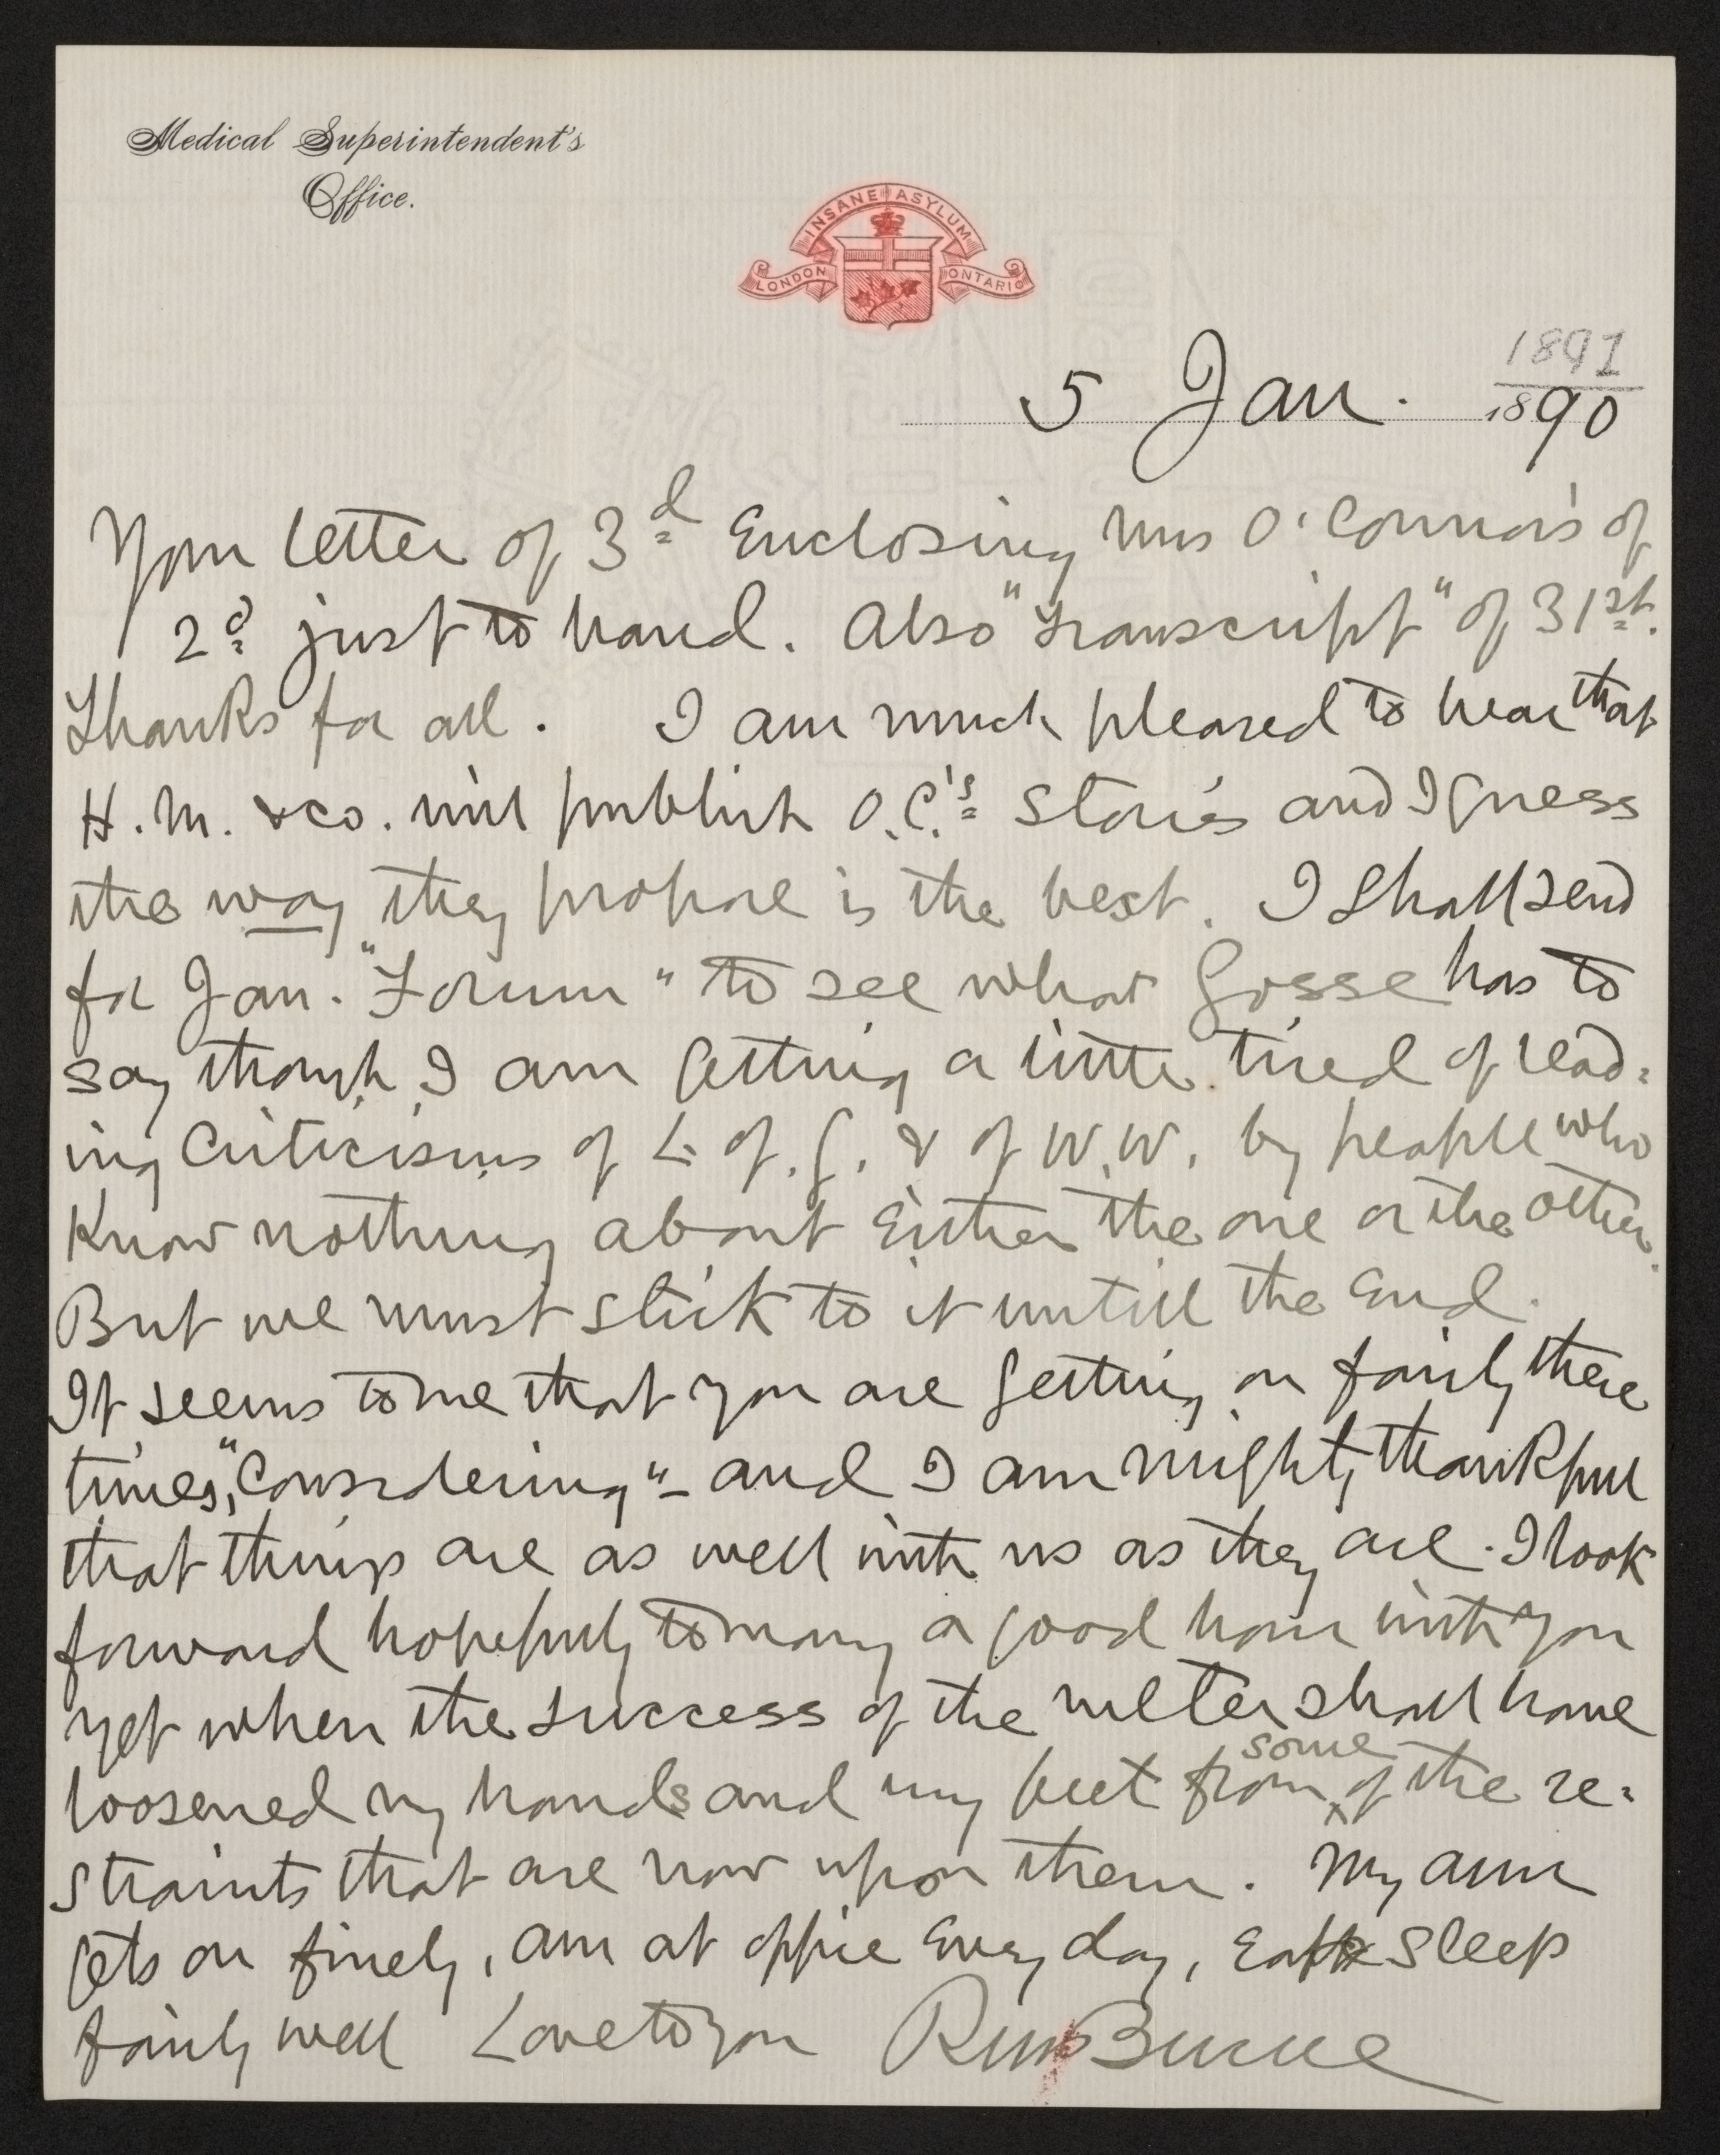 Medical Superintendent's
Office.
INSANE ASYLUM
LONDON ONTARIO
5 Jan. 1890
1891
Your letter of 3d Enclosing Mrs O'Connor's of
2d just to hand. Also "Transcript" of 31st.
Thanks for all. I am much pleased to hear that
H. M. & co. will publish O.C.'s Stories and I guess
the way they propose is the best. I shall send
for Jan. "Forum" to see what Gosse has to
say though I am getting a little tired of read-
ing Criticisms of L. of. G. & of W. W. by people who
Know nothing about Either the one or the other.
But we must stick to it untill the End.
It seems to me that you are getting on fairly these
times, "Considering" - and I am mighty thankful
that things are as well with us as they are. I look
forward hopefully to many a good hour with you
yet when the success of the meter shall have
loosened my hands and my feet from some of the re-
straints that are now upon them. My arm
gets on finely, am at office Every day, Eat & sleep
fairly well Love to you RM Bucke